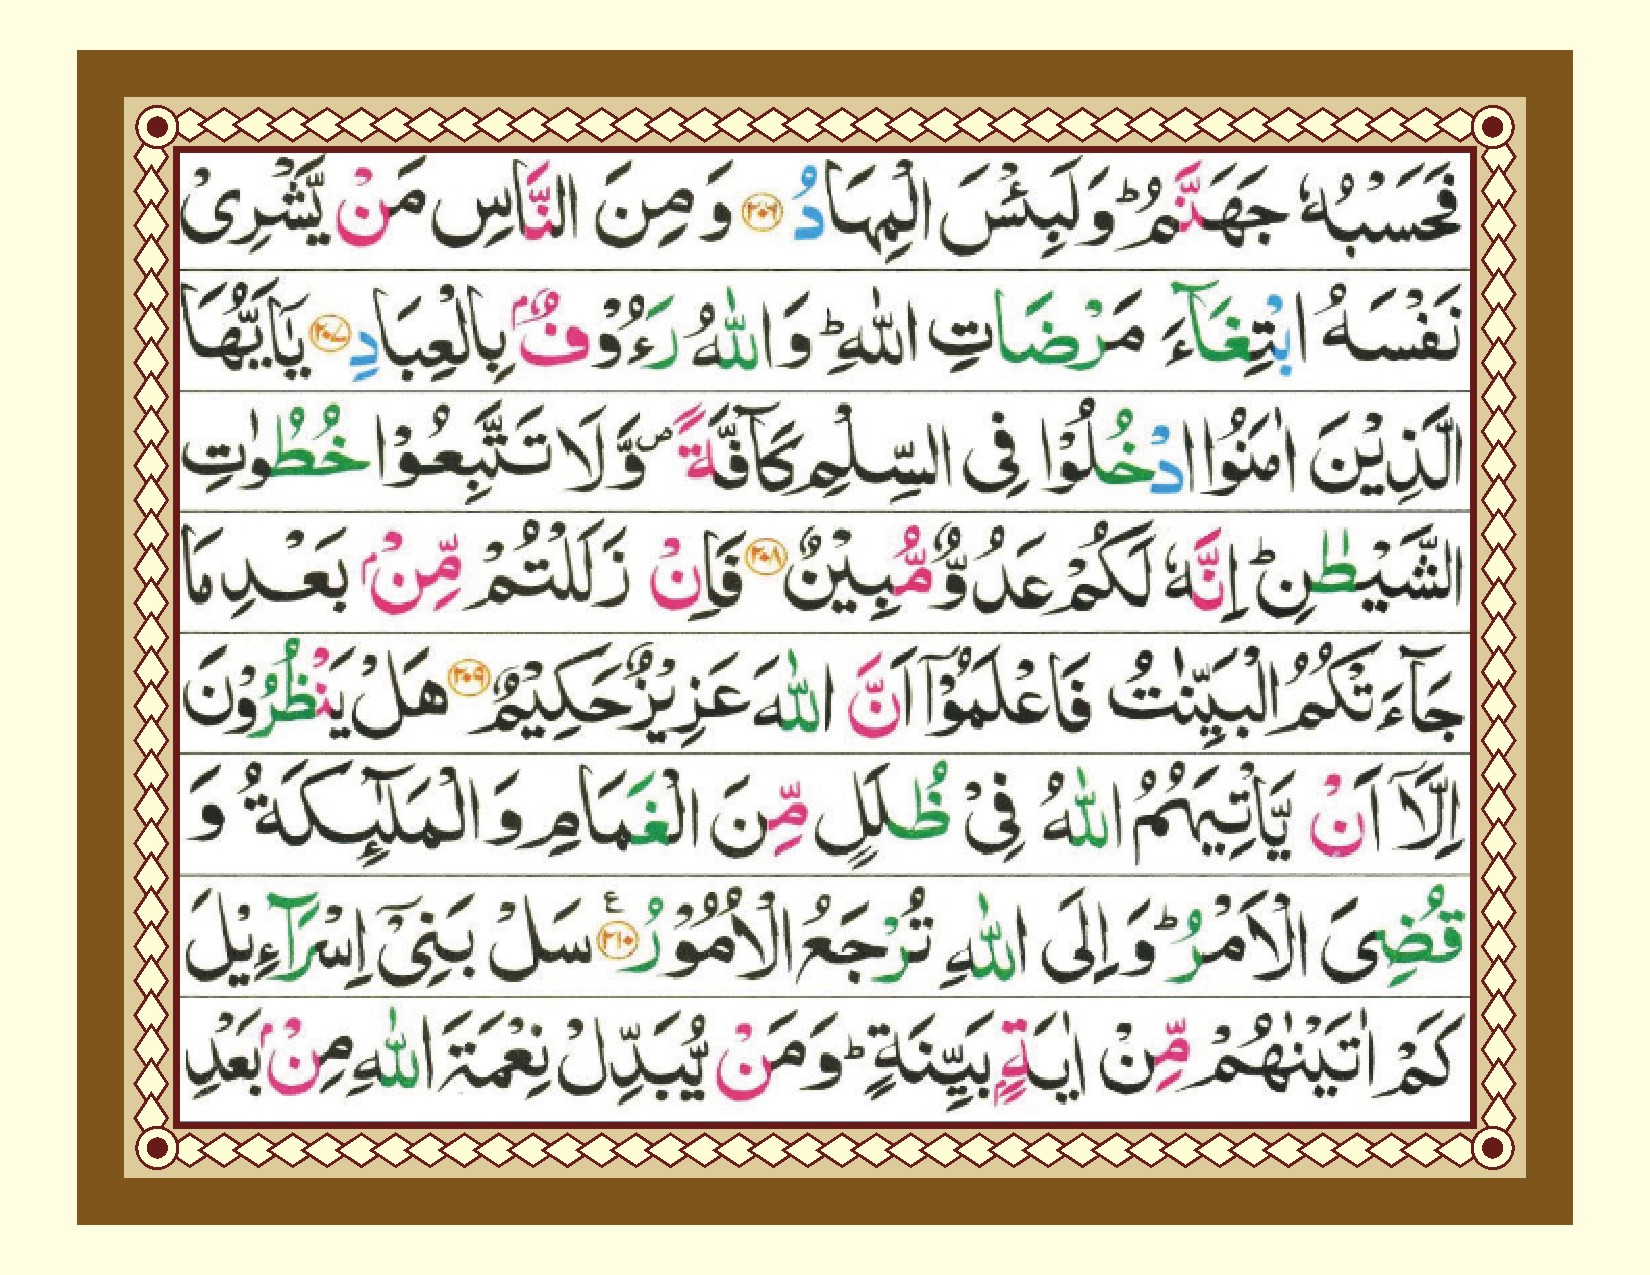 فَحَسْبُهٗ جَهَنَّمُ ؕ وَلَبِئْسَ الْمِهَادُ ﴿۲۰۶﴾ وَ مِنَ النَّاسِ مَنْ یَّشْرِیْ
نَفْسَهُ ابْتِغَآءَ مَرْضَاتِ اللّٰهِ ؕ وَ اللّٰهُ رَءُوْفٌۢ بِالْعِبَادِ ﴿۲۰۷﴾ یٰۤاَیُّهَا
الَّذِیْنَ اٰمَنُوا ادْخُلُوْا فِی السِّلْمِ كَآفَّةً ۪ وَّ لَا تَتَّبِعُوْا خُطُوٰتِ
الشَّیْطٰنِ ؕ اِنَّهٗ لَكُمْ عَدُوٌّ مُّبِیْنٌ ﴿۲۰۸﴾ فَاِنْ زَلَلْتُمْ مِّنْۢ بَعْدِ مَا
جَآءَتْكُمُ الْبَیِّنٰتُ فَاعْلَمُوْۤا اَنَّ اللّٰهَ عَزِیْزٌ حَكِیْمٌ ﴿۲۰۹﴾ هَلْ یَنْظُرُوْنَ
اِلَّاۤ اَنْ یَّاْتِیَهُمُ اللّٰهُ فِیْ ظُلَلٍ مِّنَ الْغَمَامِ وَ الْمَلٰٓئِكَةُ وَ
قُضِیَ الْاَمْرُ ؕ وَ اِلَی اللّٰهِ تُرْجَعُ الْاُمُوْرُ ﴿۲۱۰﴾ ع سَلْ بَنِیْۤ اِسْرَآءِیْلَ
كَمْ اٰتَیْنٰهُمْ مِّنْ اٰیَةٍۭ بَیِّنَةٍ ؕ وَ مَنْ یُّبَدِّلْ نِعْمَةَ اللّٰهِ مِنْۢ بَعْدِ